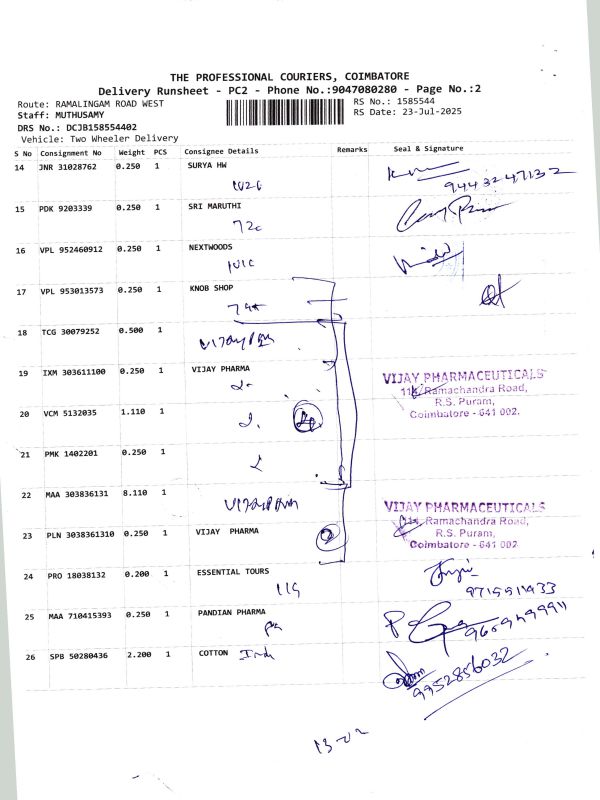 THE PROFESSIONAL COURIERS, COIMBATORE
Delivery Runsheet - PC2 - Phone No.:9047080280 - Page No.:2
Route: RAMALINGAM ROAD WEST
RS No.: 1585544
Staff: MUTHUSAMY
RS Date: 23-Jul-2025
DRS No.: DCJB158554402
Vehicle: Two Wheeler Delivery
S No Consignment No Weight PCS Consignee Details Remarks Seal & Signature
14 JNR 31028762 0.250 1 SURYA HW
9443247132
15 PDK 9203339 0.250 1 SRI MARUTHI
16 VPL 952460912 0.250 1 NEXTWOODS
17 VPL 953013573 0.250 1 KNOB SHOP
18 TCG 30079252 0.500 1
19 IXM 303611100 0.250 1 VIJAY PHARMA
VIJAY PHARMACEUTICALS
Ramachandra Road,
R.S. Puram,
Coimbatore - 641 002.
20 VCM 5132035 1.110 1
21 PMK 1402201 0.250 1
22 MAA 303836131 8.110 1
VIJAY PHARMACEUTICALS
Ramachandra Road,
R.S. Puram,
Coimbatore - 641 002
23 PLN 3038361310 0.250 1 VIJAY PHARMA
24 PRO 18038132 0.200 1 ESSENTIAL TOURS
119
25 MAA 710415393 0.250 1 PANDIAN PHARMA
26 SPB 50280436 2.200 1 COTTON
9952856032